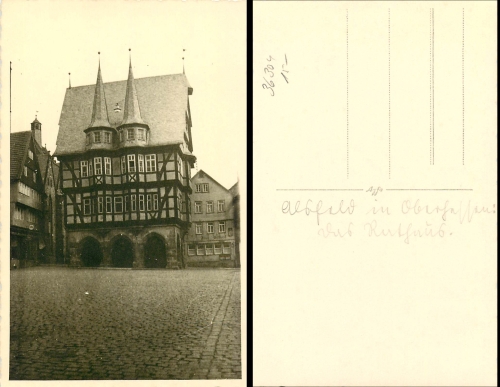 36304
1,-
Agfa
Alsfeld in Oberhessen:
das Rathaus.